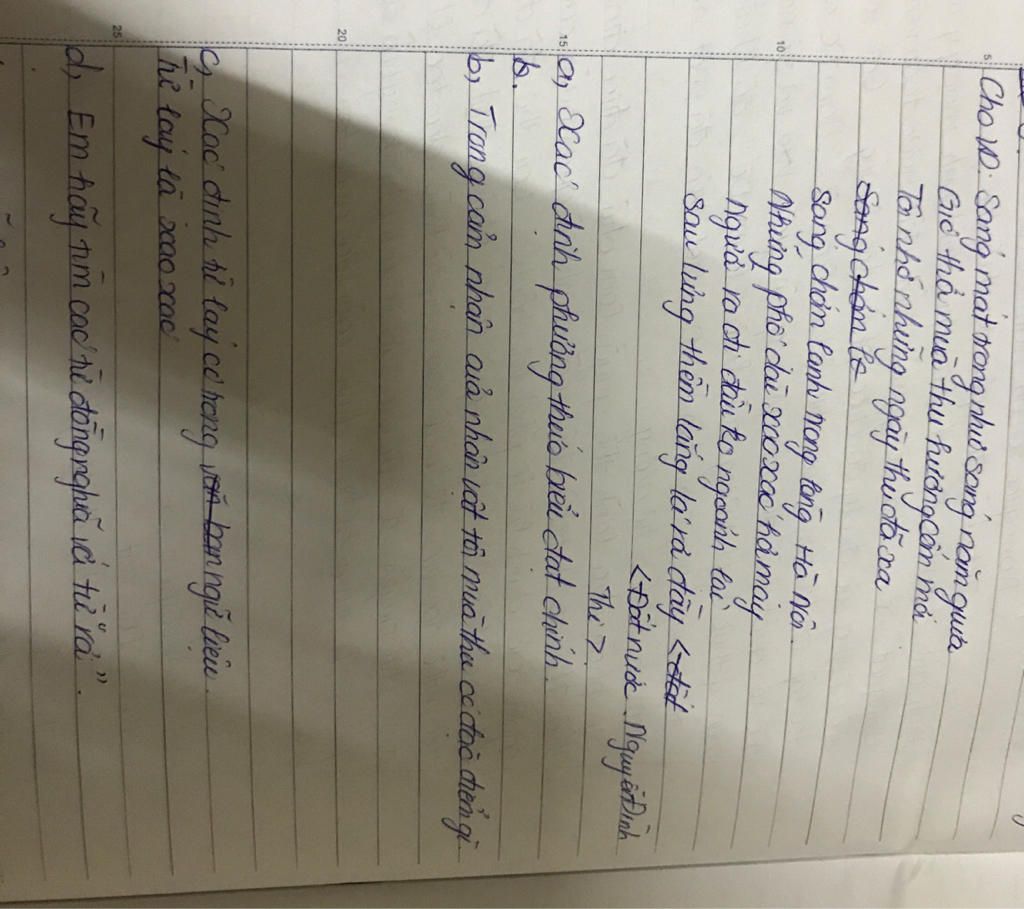 Cho VD: Sáng mát trong như sáng năm xưa
Gió thổi mùa thu hương cốm mới
Tôi nhớ những ngày thu đã xa
Sáng chớm lạnh trong lòng Hà Nội.
Những phố dài xao xác hơi may
Người ra đi đầu ko ngoảnh lại
Sau lưng thềm nắng lá rơi đầy
<Đất nước. Nguyễn Đình
Thi>
a, Xác định phương thức biểu đạt chính.
b.
b, Trong cảm nhận của nhân vật tôi mùa thu có đặc điểm gì
c, Xác định từ láy có trong văn bản ngữ liệu.
Từ láy là xao xác
d, Em hãy tìm các từ đồng nghĩa với từ "rơi".
5
10
15
20
25